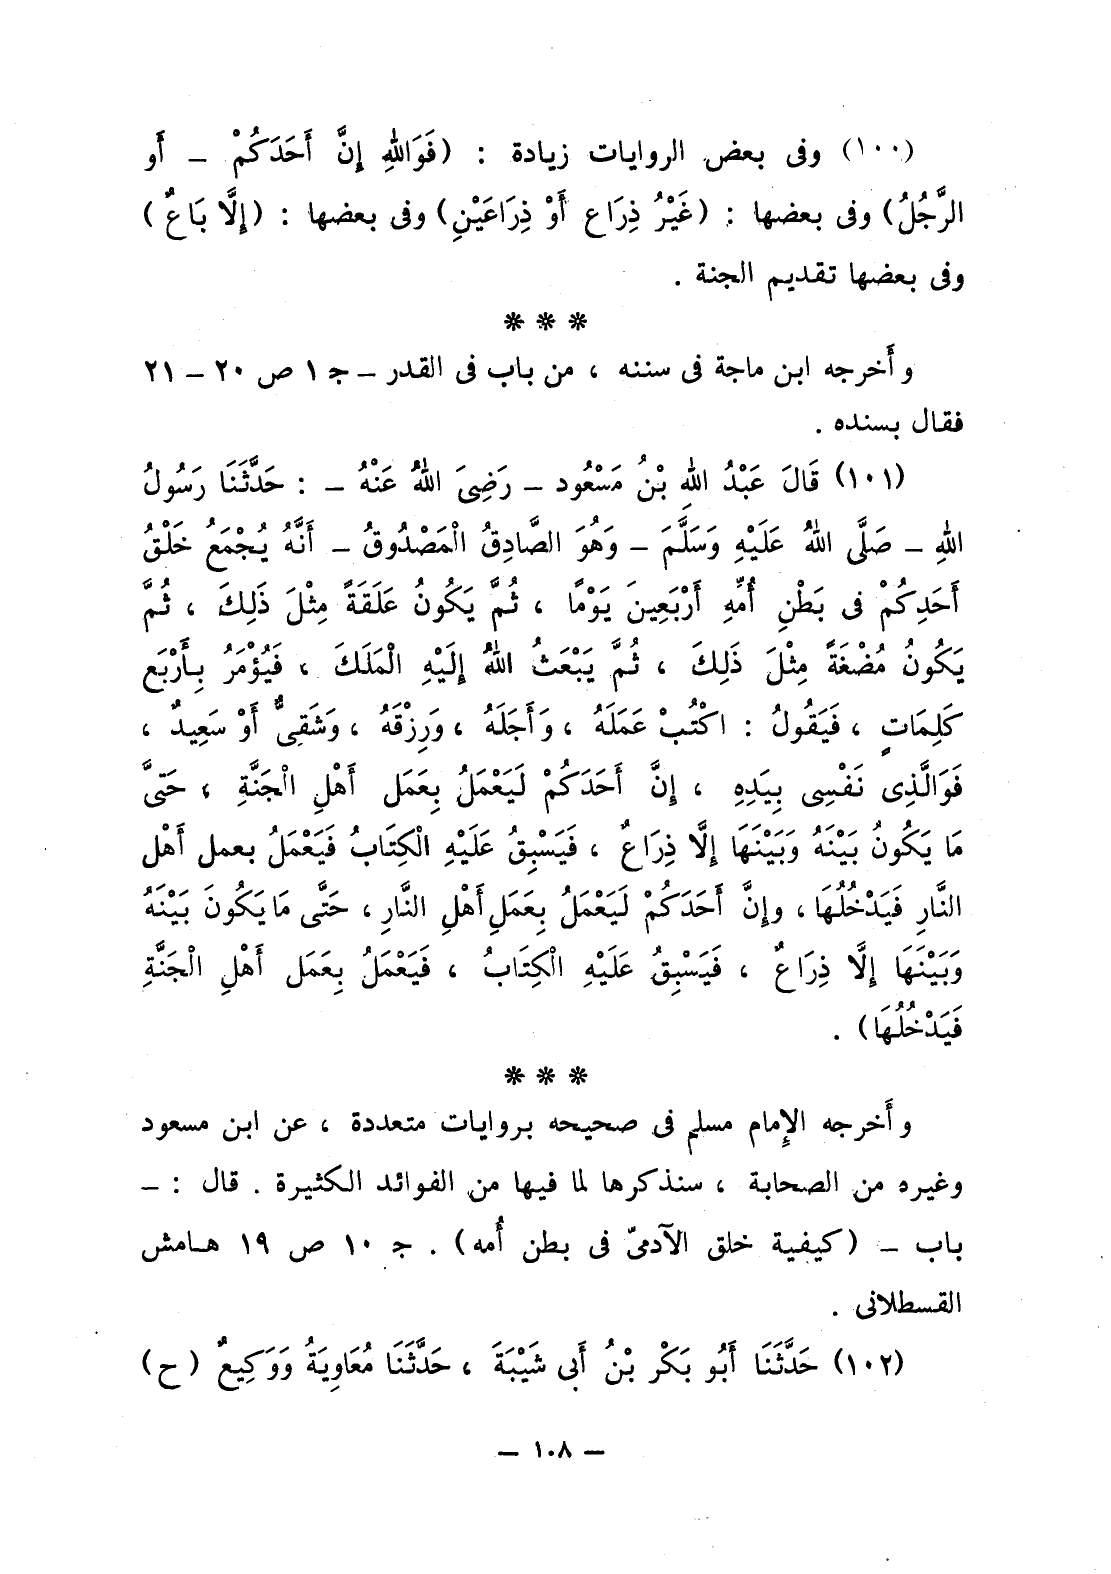 (١٠٠) وفى بعض الروايات زيادة : (فَوَاللهِ إِنَّ أَحَدَكُمْ – أَو
الرَّجُلُ) وفى بعضها : (غَيْرُ ذِرَاعٍ أَوْ ذِرَاعَيْنِ) وفى بعضها : (إِلَّا بَاعٌ)
وفى بعضها تقديم الجنة .
* * *
وأَخرجه ابن ماجة فى سننه ، من باب فى القدر – جـ ١ ص ٢٠ – ٢١
فقال بسنده .
(١٠١) قَالَ عَبْدُ اللهِ بْنُ مَسْعُودٍ – رَضِىَ اللهُ عَنْهُ – : حَدَّثَنَا رَسُولُ
اللهِ – صَلَّى اللهُ عَلَيْهِ وَسَلَّمَ – وَهُوَ الصَّادِقُ الْمَصْدُوقُ – أَنَّهُ يُجْمَعُ خَلْقُ
أَحَدِكُمْ فى بَطْنِ أُمِّهِ أَرْبَعِينَ يَوْمًا ، ثُمَّ يَكُونُ عَلَقَةً مِثْلَ ذَلِكَ ، ثُمَّ
يَكُونُ مُضْغَةً مِثْلَ ذَلِكَ ، ثُمَّ يَبْعَثُ اللهُ إِلَيْهِ الْمَلَكَ ، فَيُؤْمَرُ بِأَرْبَعِ
كَلِمَاتٍ ، فَيَقُولُ : اكْتُبْ عَمَلَهُ ، وَأَجَلَهُ ، وَرِزْقَهُ ، وَشَقِىٌّ أَوْ سَعِيدٌ ،
فَوَالَّذِى نَفْسِى بِيَدِهِ ، إِنَّ أَحَدَكُمْ لَيَعْمَلُ بِعَمَلِ أَهْلِ الْجَنَّةِ ، حَتَّى
مَا يَكُونُ بَيْنَهُ وَبَيْنَهَا إِلَّا ذِرَاعٌ ، فَيَسْبِقُ عَلَيْهِ الْكِتَابُ فَيَعْمَلُ بعمل أَهْل
النَّارِ فَيَدْخُلُهَا ، وإِنَّ أَحَدَكُمْ لَيَعْمَلُ بِعَمَلِ أَهْلِ النَّارِ ، حَتَّى مَا يَكُونَ بَيْنَهُ
وَبَيْنَهَا إِلَّا ذِرَاعٌ ، فَيَسْبِقُ عَلَيْهِ الْكِتَابُ ، فَيَعْمَلُ بِعَمَلِ أَهْلِ الْجَنَّةِ
فَيَدْخُلُهَا) .
* * *
وأَخرجه الإِمام مسلم فى صحيحه بروايات متعددة ، عن ابن مسعود
وغيره من الصحابة ، سنذكرها لما فيها من الفوائد الكثيرة . قال : –
باب – (كيفية خلق الآدمىّ فى بطن أُمه) . جـ ١٠ ص ١٩ هـامش
القسطلانى .
(١٠٢) حَدَّثَنَا أَبُو بَكْرِ بْنُ أَبِى شَيْبَةَ ، حَدَّثَنَا مُعَاوِيَةُ وَوَكِيعٌ (ح)
– ١٠٨ –